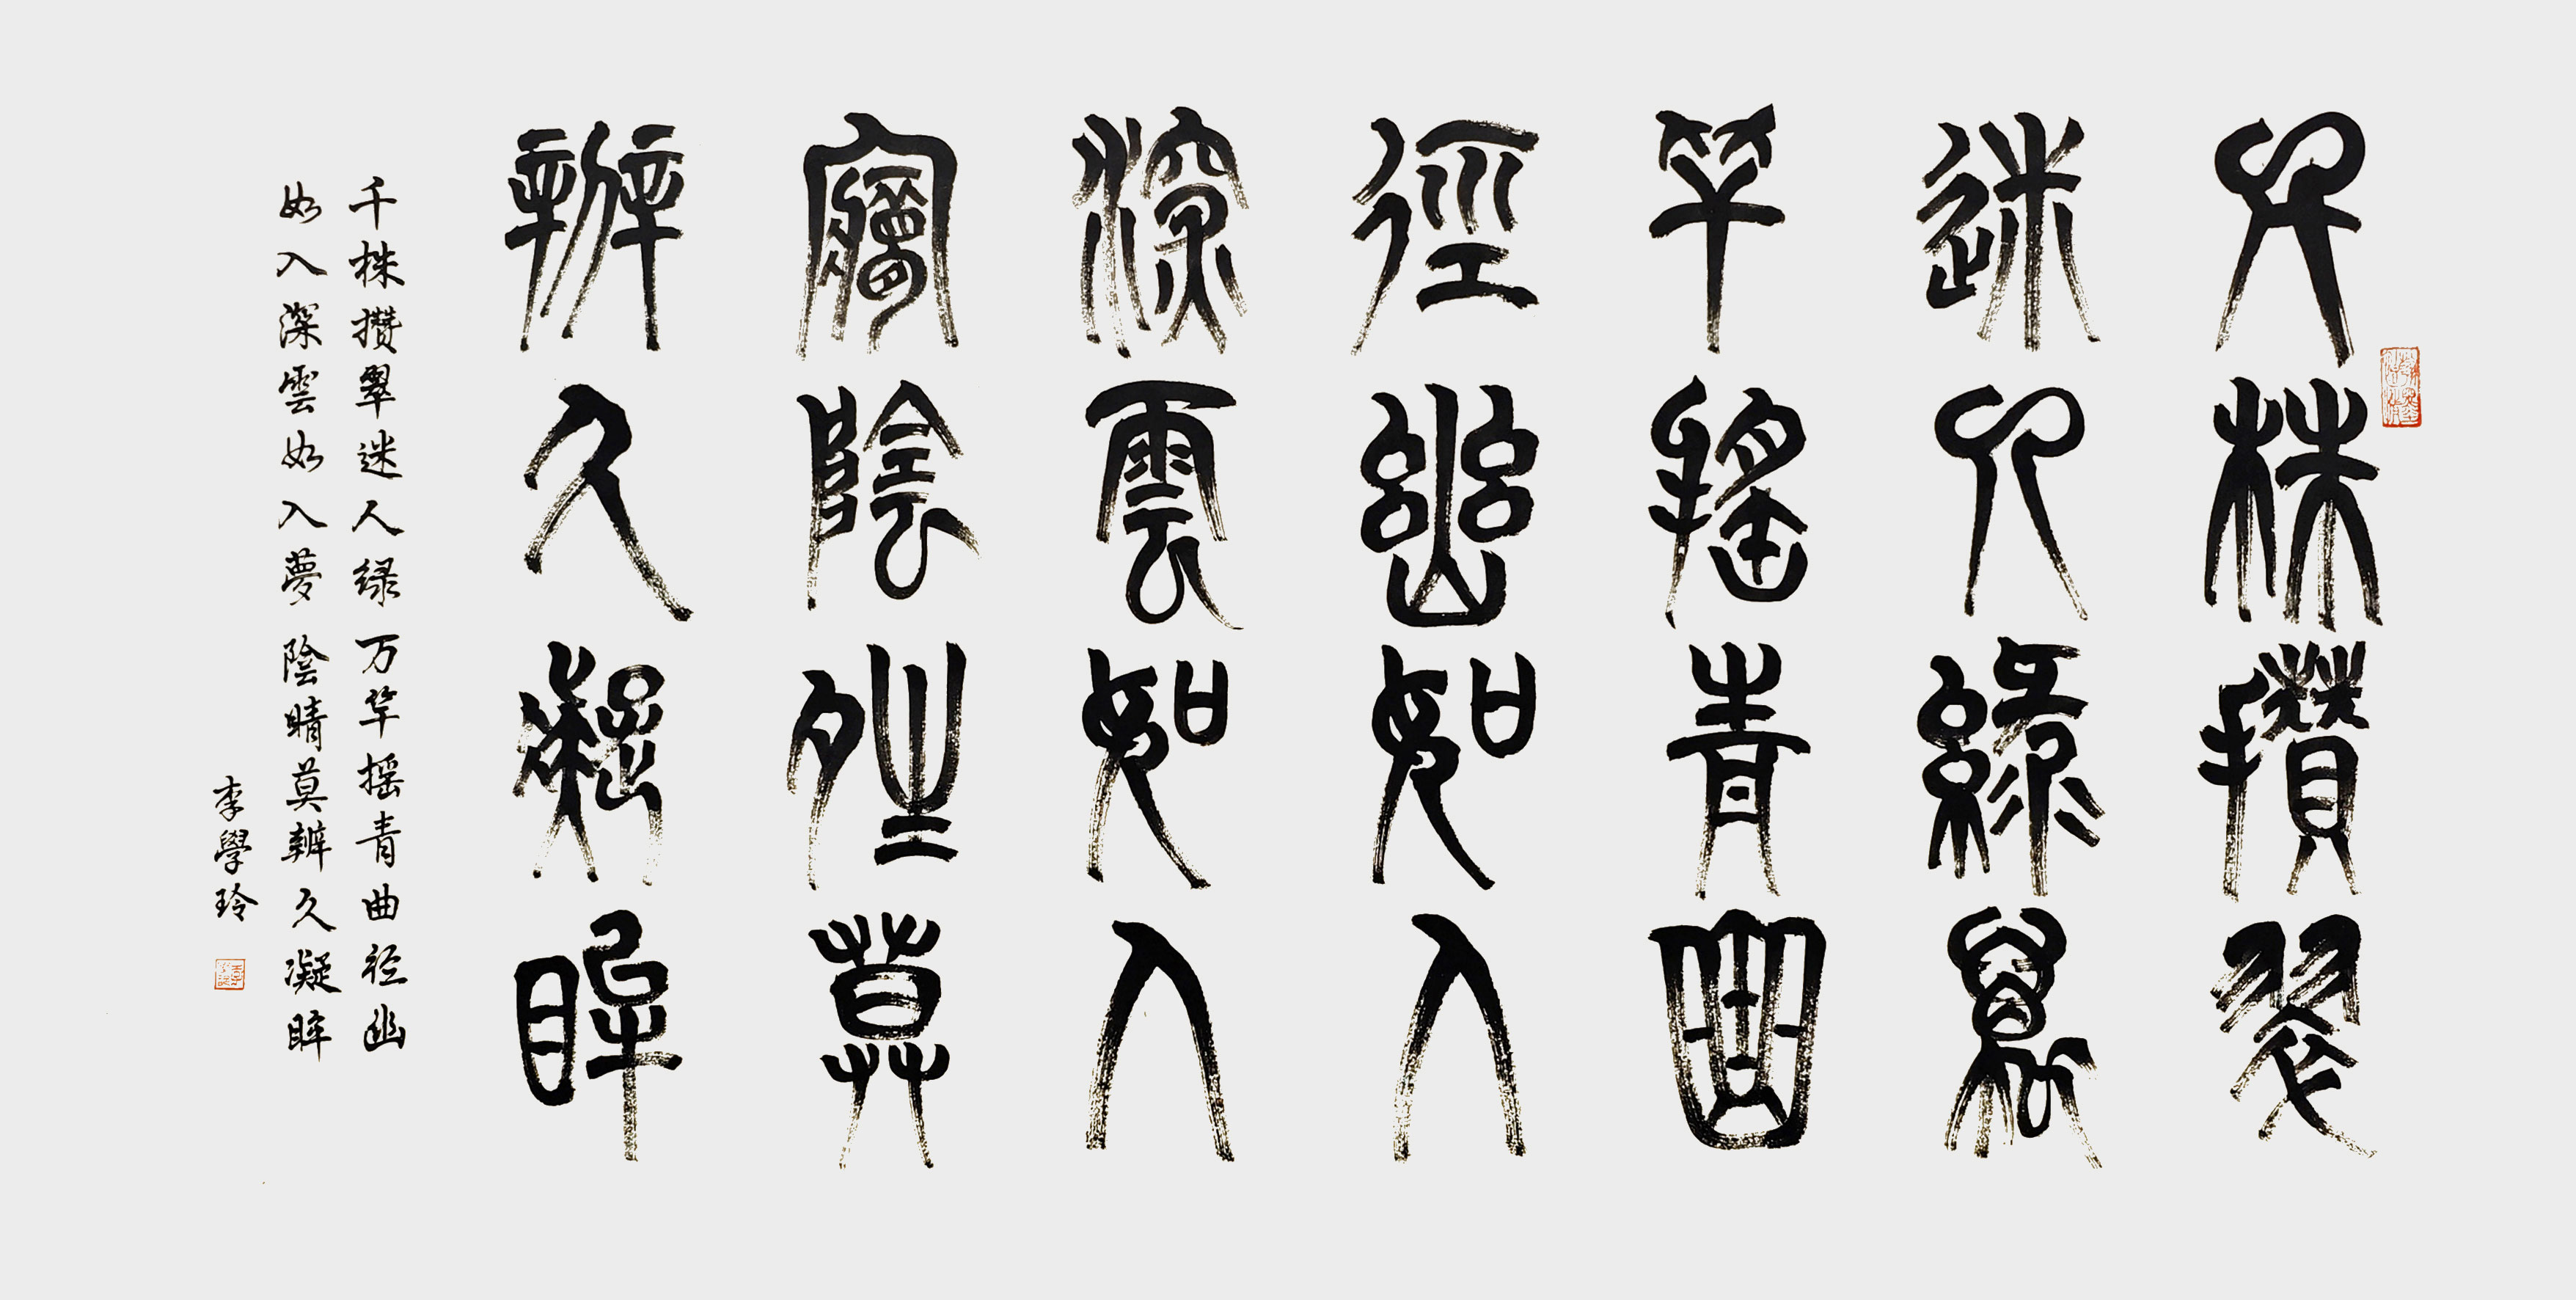 千株攢翠
迷人綠萬
竿搖青曲
徑幽如入
深雲如入
夢陰姓莫
辦久凝眸
千株攒翠迷人绿万竿摇青曲径幽
如入深雲如入夢陰晴莫辦久凝眸
李學玲